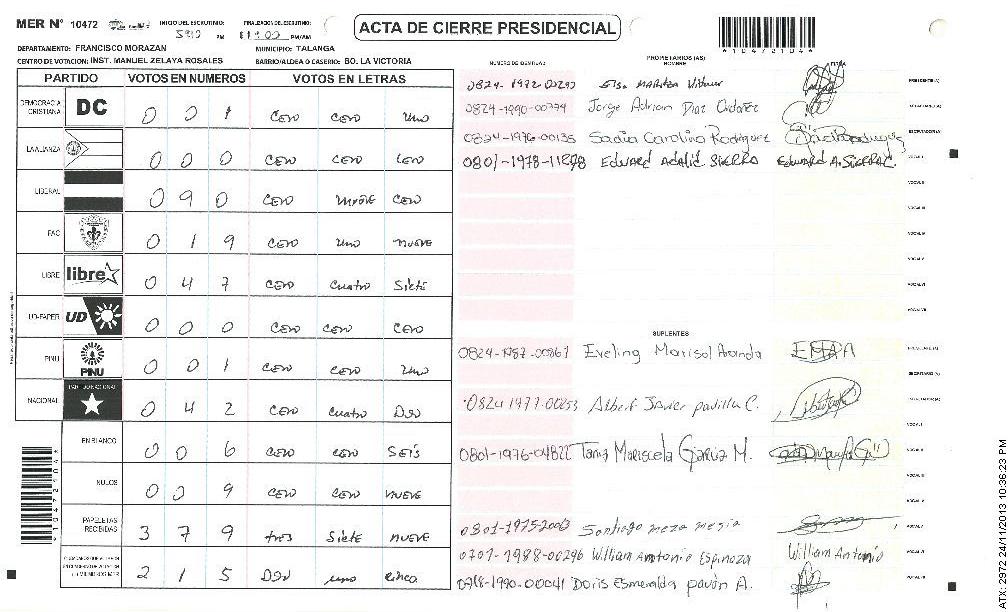 MER N° 10472
INICIO DEL ESCRUTINIO:
PM
FINALIZACION DEL ESCRUTINIO:
PM/AM
ACTA DE CIERRE PRESIDENCIAL
*10472104*
DEPARTAMENTO: FRANCISCO MORAZAN
MUNICIPIO: TALANGA
CENTRO DE VOTACION: INST. MANUEL ZELAYA ROSALES
BARRIO/ALDEA O CASERIO: BO. LA VICTORIA
PARTIDO VOTOS EN NUMEROS VOTOS EN LETRAS
DEMOCRACIA CRISTIANA DC 0 0 1 cero cero uno
LA ALIANZA 0 0 0 cero cero cero
LIBERAL 0 9 0 cero nueve cero
PAC 0 1 9 cero uno nueve
LIBRE libre 0 4 7 cero cuatro siete
UD-FAPER UD 0 0 0 cero cero cero
PINU PINU 0 0 1 cero cero uno
NACIONAL PARTIDO NACIONAL 0 4 2 cero cuatro dos
EN BLANCO 0 0 6 cero cero seis
NULOS 0 0 9 cero cero nueve
PAPELETAS RECIBIDAS 3 7 9 tres siete nueve
2 1 5 dos uno cinco
NUMERO DE IDENTIDAD
PROPIETARIOS (AS)
NOMBRE
FIRMA
0824-1972-00297
0824-1990-00794 Jorge Adrian Diaz Ordoñez
0824-1976-00135 Sadia Carolina Rodriguez
0801-1978-11898 Edward Adalid Sierra Edward A. Sierra C.
SUPLENTES
0824-1987-00867 Eveling Marisol Aranda EMAA
0824 1977-00253 Albert Javier padilla C.
0801-1976-04822 Tania Mariscela Garcia M.
0801-1975-2063 Santiago meza mejia
0701-1988-00296 William Antonio Espinoza William Antonio
0918-1990-00041 Doris Esmeralda pavon A.
ATX 2972 24/11/2013 10:36:23 PM